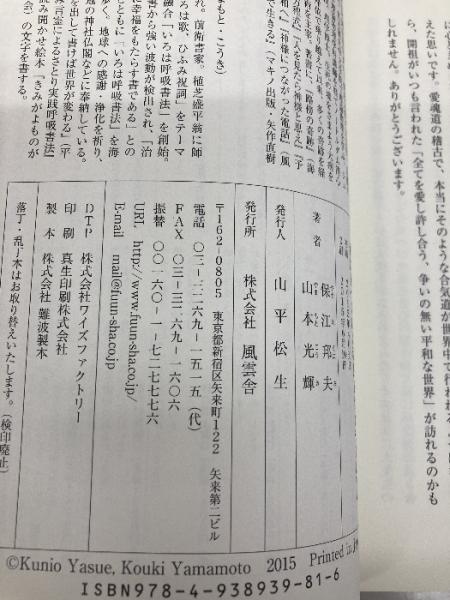 に心と
えた思いです。愛魂道の稽古で、本当にそのような合気道が世界中で行われる
ら、開祖がいつも言われた「全てを愛し許し合う、争いの無い平和な世界」が訪れるのかも
しれません。ありがとうございます。
で生きる』(マキノ出版・矢作直樹
まもと・こうき)
れ。前衛書家。植芝盛平翁に師
ろは歌、ひふみ祝詞」をテーマ
融合「いろは呼吸書法」を創始。
書から強い波動が検出され、「治
幸福をもたらす書である」との
ともに「いろは呼吸書法」を海
歩く。地球への感謝・浄化を祈り、
地の神社仏閣などに奉納している。
を出して書けば世界が変わる』(平
『言霊によるさとり実践呼吸書法』
読み聞かせ絵本『きみがよものが
会)の文字を書する。
著者 保江邦夫
山本光輝
発行人 山平松生
発行所 株式会社 風雲舎
〒162-0805 東京都新宿区矢来町122 矢来第二ビル
電話 〇三-三二六九-一五一五(代)
FAX 〇三-三二六九-一六〇六
振替 〇〇一六〇-一-七二七七七六
URL http://www.fuun-sha.co.jp/
E-mail mail@fuun-sha.co.jp
DTP 株式会社ワイズファクトリー
印刷 真生印刷株式会社
製本 株式会社 難波製本
落丁・乱丁本はお取り替えいたします。(検印廃止)
©Kunio Yasue, Kouki Yamamoto 2015 Printed in
ISBN978-4-938939-81-6